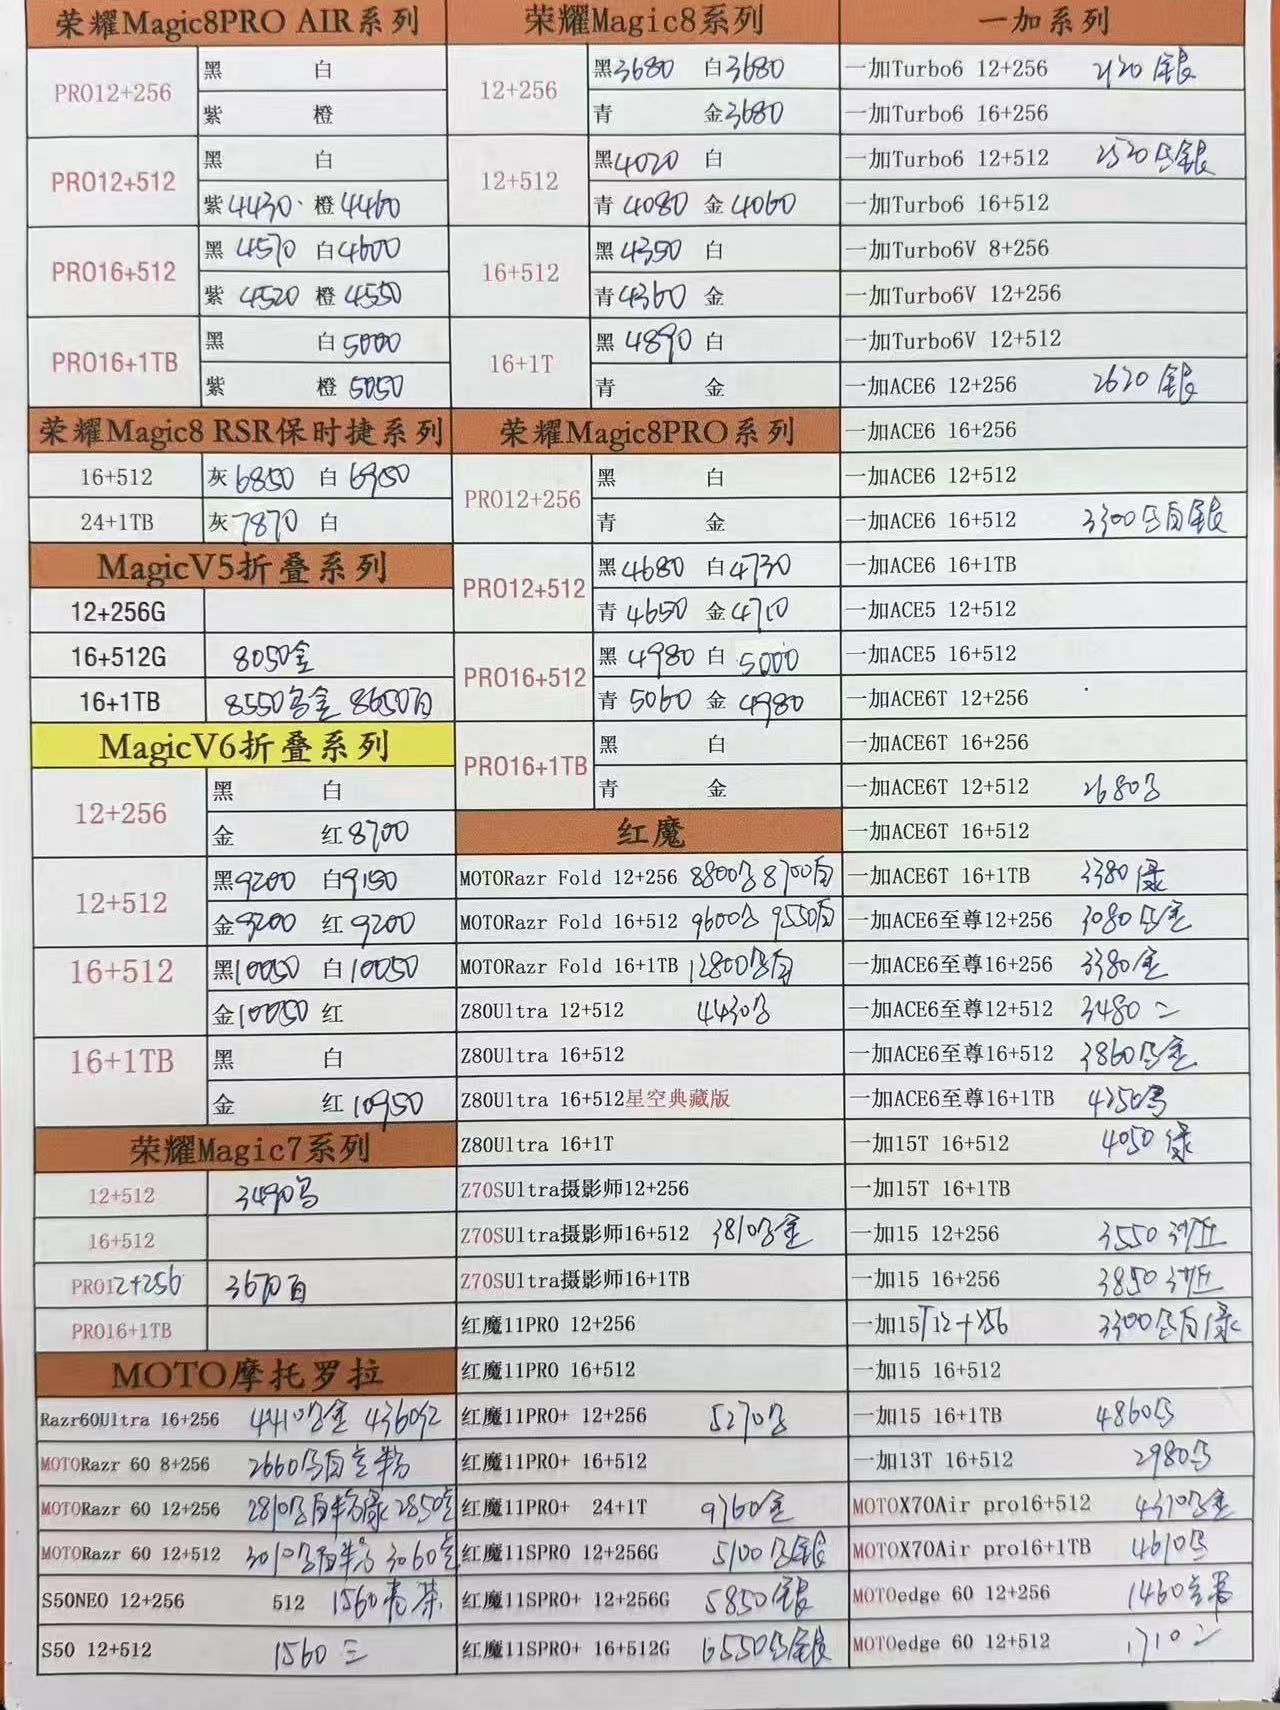 荣耀Magic8PRO AIR系列
PRO12+256
黑 白
紫 橙
PRO12+512
黑 白
紫4430 橙4460
PRO16+512
黑 4570 白4600
紫 4520 橙 4550
PRO16+1TB
黑 白5000
紫 橙 5050
荣耀Magic8 RSR保时捷系列
16+512 灰6850 白 6950
24+1TB 灰7870 白
MagicV5折叠系列
12+256G
16+512G 8050金
16+1TB 8550 金 8650白
MagicV6折叠系列
12+256
黑 白
金 红8700
12+512
黑9200 白9150
金9200 红9200
16+512
黑10050 白10050
金10050 红
16+1TB
黑 白
金 红10950
荣耀Magic7系列
12+512 3490
16+512
PRO12+256 白
PRO16+1TB
MOTO摩托罗拉
Razr60Ultra 16+256 4410 金 4360红
MOTORazr 60 8+256 2660 白 粉
MOTORazr 60 12+256 2810 白粉绿 2850
MOTORazr 60 12+512 3010 3060
S50NEO 12+256 512 1560
S50 12+512 1560 三
荣耀Magic8系列
12+256
黑3680 白3680
青 金3680
12+512
黑4020 白
青 4080 金4060
16+512
黑4350 白
青4360 金
16+1T
黑 4890 白
青 金
荣耀Magic8PRO系列
PRO12+256
黑 白
青 金
PRO12+512
黑4680 白4730
青 4650 金4710
PRO16+512
黑 4980 白 5000
青 5060 金 4980
PRO16+1TB
黑 白
青 金
红魔
MOTORazr Fold 12+256 8800 8700白
MOTORazr Fold 16+512 9600 9550白
MOTORazr Fold 16+1TB 12800 白
Z80Ultra 12+512 4430
Z80Ultra 16+512
Z80Ultra 16+512星空典藏版
Z80Ultra 16+1T
Z70SUltra摄影师12+256
Z70SUltra摄影师16+512 3810 金
Z70SUltra摄影师16+1TB
红魔11PRO 12+256
红魔11PRO 16+512
红魔11PRO+ 12+256 5270
红魔11PRO+ 16+512
红魔11PRO+ 24+1T 9760金
红魔11SPRO 12+256G 5100 银
红魔11SPRO+ 12+256G 5850银
红魔11SPRO+ 16+512G 6550 银
一加系列
一加Turbo6 12+256 2120 银
一加Turbo6 16+256
一加Turbo6 12+512 2520 银
一加Turbo6 16+512
一加Turbo6V 8+256
一加Turbo6V 12+256
一加Turbo6V 12+512
一加ACE6 12+256 2620 银
一加ACE6 16+256
一加ACE6 12+512
一加ACE6 16+512 3300 白银
一加ACE6 16+1TB
一加ACE5 12+512
一加ACE5 16+512
一加ACE6T 12+256
一加ACE6T 16+256
一加ACE6T 12+512 2680
一加ACE6T 16+512
一加ACE6T 16+1TB 3380 绿
一加ACE6至尊12+256 3080 金
一加ACE6至尊16+256 3380金
一加ACE6至尊12+512 3480 二
一加ACE6至尊16+512 3860 金
一加ACE6至尊16+1TB
一加15T 16+512 4050 绿
一加15T 16+1TB
一加15 12+256 3550
一加15 16+256 3850
一加15T12+256 3300 白绿
一加15 16+512
一加15 16+1TB 4860
一加13T 16+512 2980
MOTOX70Air pro16+512 4370 金
MOTOX70Air pro16+1TB 4610
MOTOedge 60 12+256 1460
MOTOedge 60 12+512 1710 二